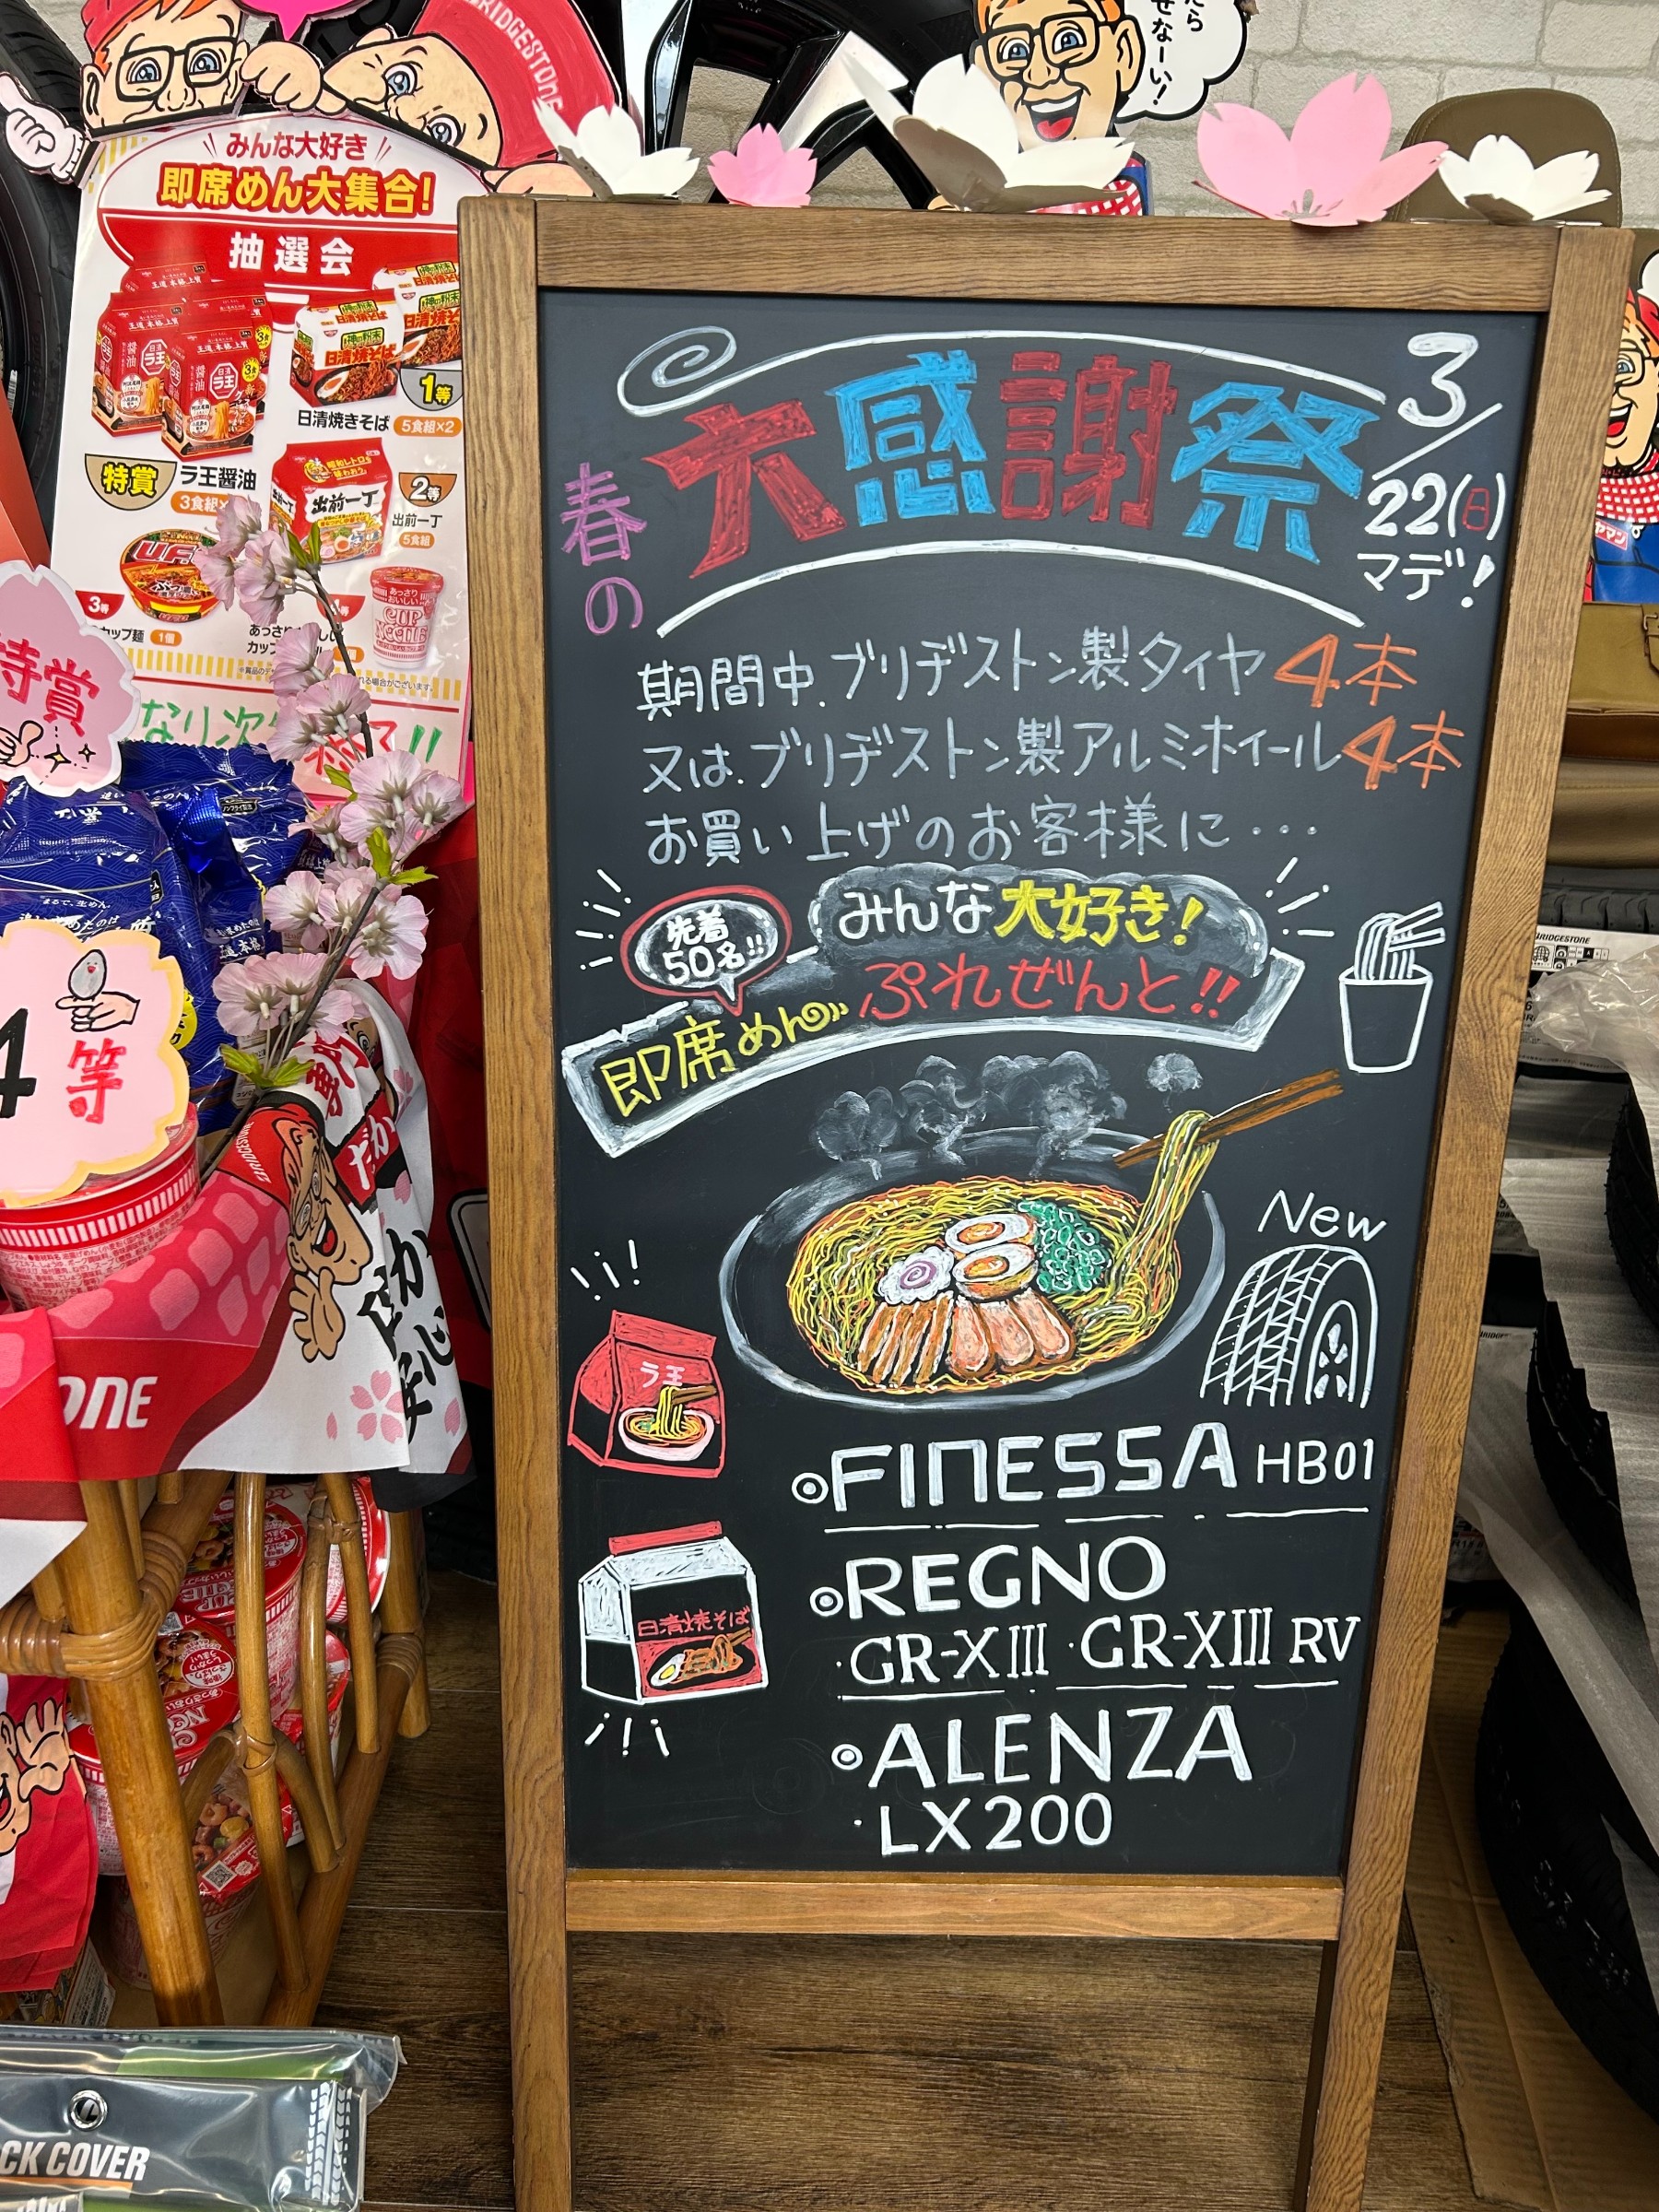 BRIDGESTONE
みんな大好き
即席めん大集合!
抽選会
王道 本格 上質
ラ王
醤油
日清焼そば
1等
日清焼きそば 5食組×2
特賞 ラ王醤油
3食組
出前一丁
2等
出前一丁
5食組
UFO
3等
カップ麺 1個
あっさり
おいしい
CUP
NOODLE
特賞
なり次
終了!!
まるで、生めん。
4等
ONE
安心
CK COVER
春の
大感謝祭
3/22(日)
マデ!
期間中、ブリヂストン製タイヤ4本
又は、ブリヂストン製アルミホイール4本
お買い上げのお客様に…
先着
50名!!
みんな大好き!
即席めん ぷれぜんと!!
New
ラ王
日清焼そば
◎FINESSA HB01
◎REGNO
・GR-XIII ・GR-XIII RV
◎ALENZA
・LX200
BRIDGESTONE